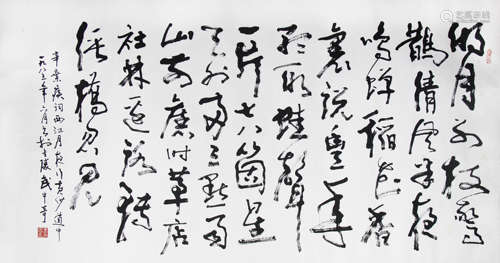 明月别枝惊
鹊清风半夜
鸣蝉稻花香
裏说豊年
听取蛙声
一片七八箇星
天外两三点雨
山前舊时茅店
社林边路转
溪桥忽见
辛棄疾词西江月夜行黄沙道中
一九八三年六月 金陵武中奇